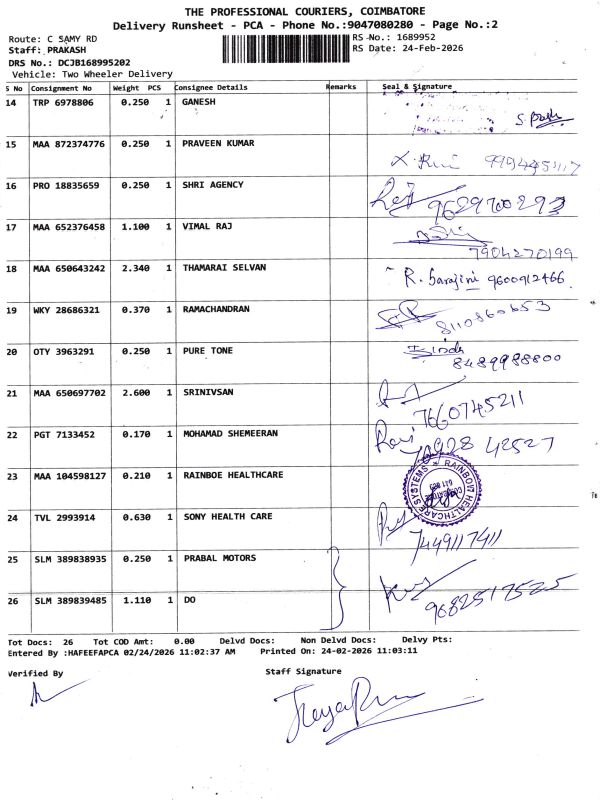 THE PROFESSIONAL COURIERS, COIMBATORE
Delivery Runsheet - PCA - Phone No.:9047080280 - Page No.:2
Route: C SAMY RD
RS No.: 1689952
Staff: PRAKASH
RS Date: 24-Feb-2026
DRS No.: DCJB168995202
Vehicle: Two Wheeler Delivery
S No Consignment No Weight PCS Consignee Details Remarks Seal & Signature
14 TRP 6978806 0.250 1 GANESH
15 MAA 872374776 0.250 1 PRAVEEN KUMAR
16 PRO 18835659 0.250 1 SHRI AGENCY 9629700293
17 MAA 652376458 1.100 1 VIMAL RAJ
7904270199
18 MAA 650643242 2.340 1 THAMARAI SELVAN R. Sarajini 9600912466
19 WKY 28686321 0.370 1 RAMACHANDRAN 8110860653
20 OTY 3963291 0.250 1 PURE TONE
8489988800
21 MAA 650697702 2.600 1 SRINIVSAN
7660745211
22 PGT 7133452 0.170 1 MOHAMAD SHEMEERAN
23 MAA 104598127 0.210 1 RAINBOE HEALTHCARE RAINBOW HEALTHCARE SYSTEMS
24 TVL 2993914 0.630 1 SONY HEALTH CARE
7449117411
25 SLM 389838935 0.250 1 PRABAL MOTORS
26 SLM 389839485 1.110 1 DO 9682517525
Tot Docs: 26 Tot COD Amt: 0.00 Delvd Docs: Non Delvd Docs: Delvy Pts:
Entered By :HAFEEFAPCA 02/24/2026 11:02:37 AM Printed On: 24-02-2026 11:03:11
Verified By
Staff Signature